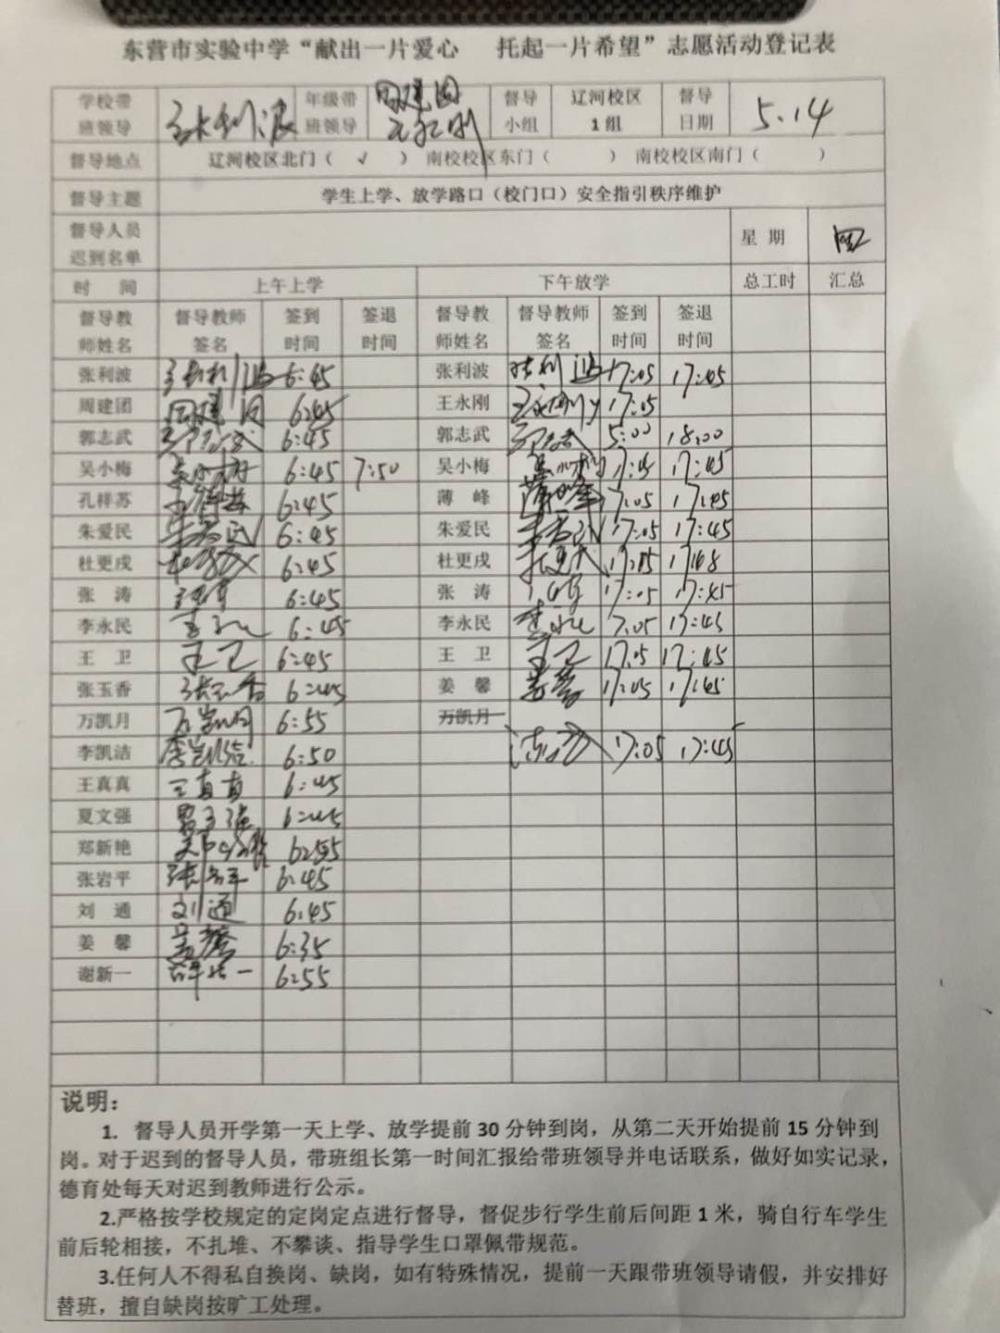 东营市实验中学“献出一片爱心 托起一片希望”志愿活动登记表
学校带班领导 张利波 年级带班领导 周建团 王永刚 督导小组 辽河校区1组 督导日期 5.14
督导地点 辽河校区北门（ √ ） 南校校区东门（ ） 南校校区南门（ ）
督导主题 学生上学、放学路口（校门口）安全指引秩序维护
督导人员迟到名单 星 期 四
时 间 上午上学 下午放学 总工时 汇总
督导教师姓名 督导教师签名 签到时间 签退时间 督导教师姓名 督导教师签名 签到时间 签退时间
张利波 张利波 6:45 张利波 张利波 17:05 17:45
周建团 周建团 6:45 王永刚 王永刚 17:05
郭志武 郭志武 6:45 郭志武 郭志武 5:00 18:00
吴小梅 吴小梅 6:45 7:50 吴小梅 吴小梅 17:45
孔祥苏 6:45 薄 峰 薄峰 17:05 17:45
朱爱民 朱爱民 6:45 朱爱民 朱爱民 17:05 17:45
杜更戌 杜更戌 6:45 杜更戌 杜更戌
张 涛 张涛 6:45 张 涛 17:05 17:45
李永民 李永民 6:45 李永民 李永民 7.05 17:45
王 卫 王卫 6:45 王 卫 王卫 17.05 17:45
张玉香 张玉香 6:45 姜 馨 姜馨 17:05 17:45
万凯月 万凯月 6:55 万凯月
李凯洁 李凯洁 6:50 17:05 17:45
王真真 王真真 6:45
夏文强 夏文强 6:45
郑新艳 郑新艳 6:55
张岩平 张岩平 6:45
刘 通 刘通 6.45
姜 馨 姜馨 6:35
谢新一 6:55
说明：
1. 督导人员开学第一天上学、放学提前 30 分钟到岗，从第二天开始提前 15 分钟到
岗。对于迟到的督导人员，带班组长第一时间汇报给带班领导并电话联系，做好如实记录，
德育处每天对迟到教师进行公示。
2.严格按学校规定的定岗定点进行督导，督促步行学生前后间距 1 米，骑自行车学生
前后轮相接，不扎堆、不攀谈、指导学生口罩佩带规范。
3.任何人不得私自换岗、缺岗，如有特殊情况，提前一天跟带班领导请假，并安排好
替班，擅自缺岗按旷工处理。